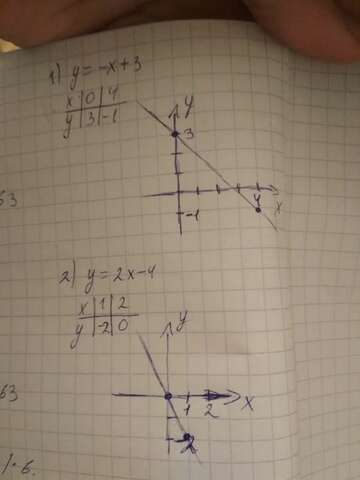 1) y = -x+3
x 0 4
y 3 -1
y
3
4
x
-1
63
2) y = 2x-4
x 1 2
y -2 0
y
63
1 2 x
-2
1.6.